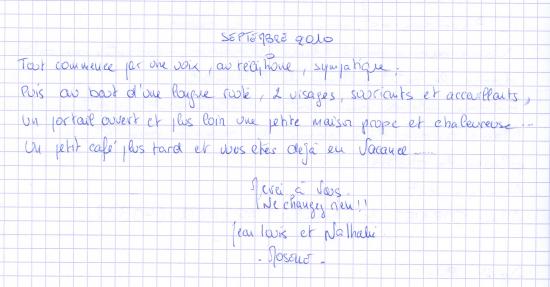 SEPTEMBRE 2010
Tout commence par une voix, au téléphone, sympatique :
Puis au bout d'une longue route, 2 visages, souriants et accueillants,
un portail ouvert et plus loin une petite maison propre et chaleureuse...
Un petit café plus tard et vous etes dejà en Vacance.....
Merci à vous
Ne changez rien !!
Jean louis et Nathalie